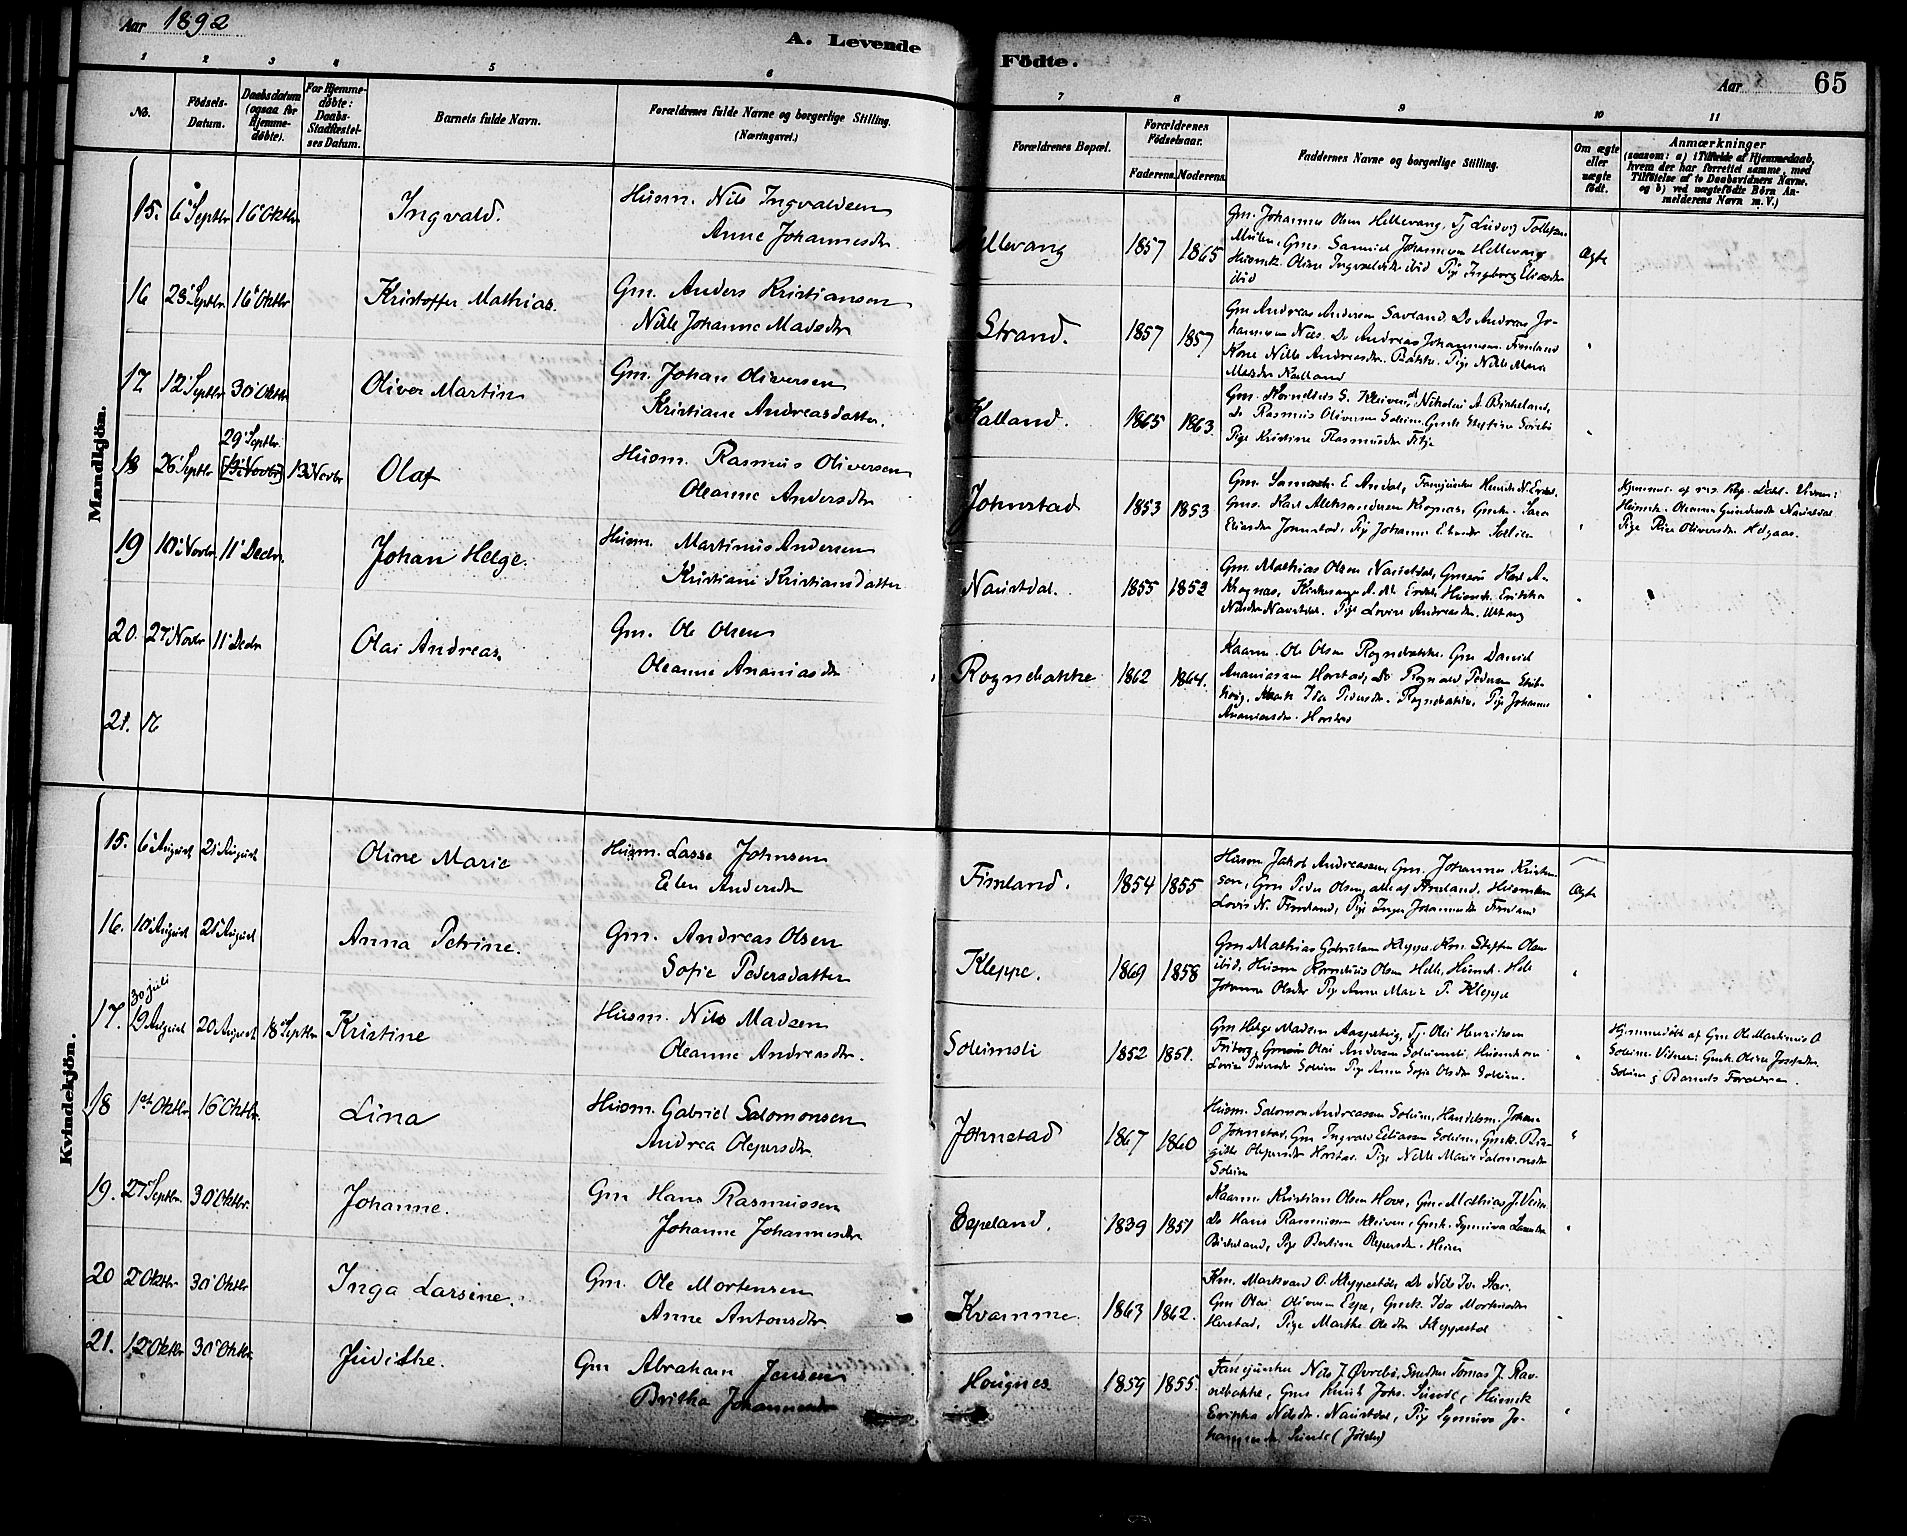 Aar 1892
A. Levende
Födte.
Aar
65
1 2 3 4 5 6 7 8 9 10 11
No.
Födsels-Datum.
Daabsdatum (ogsaa for Hjemme-døbte).
For Hjemme-døbte: Daabs-Stadfæstel-ses Datum.
Barnets fulde Navn.
Forældrenes fulde Navne og borgerlige Stilling. (Næringsvei.)
Forældrenes Bopæl.
Forældrenes Födselsaar.
Faderens. Moderens.
Faddernes Navne og borgerlige Stilling.
Om ægte eller uægte født.
Anmærkninger
(saasom: a) i Tilfælde af Hjemmedaab,
hvem der har forrettet samme, med
Tilföielse af to Daabsvidners Navne,
og b) ved uægtefödte Börn An-
melderens Navn m. V.)
Mandkjön.
15. 6 Septbr 16 Oktbr Ingvald. Husm. Nils Ingvaldsen
Anne Johannesdtr.
Hellevang 1857 1865 Ægte
Gm. Johannes Olsen Hellevang, Tj Ludvig Tollefsen
Gms. Samuel Johannesen Hellevang
Husmk. Oline Ingvaldsdtr ibid Pige Ingborg Eliasdtr
ibid
16 23 Septbr 16 Oktbr Kristoffer Mathias. Gm. Anders Kristiansen
Nille Johanne Madsdtr
Strand. 1857 1857
Gm Andreas Andersen Savland, Do Andreas Jo-
hannesen Nœs. Do Andreas Johannesen Fimland
Kone Nille Andreasdtr. Bakke. Pige Nille Marie
Madsdtr Kalland
17 12 Septbr 30 Oktbr Oliver Martin Gm. Johan Oliversen
Kristiane Andreasdatter.
Kalland. 1865 1863.
Gm. Kornelius S. Kleiven, Nikolai A. Birkeland,
Do Rasmus Oliversen Soleim
Pige Kristine Rasmusdtr
18 26 Septbr 29 Septbr [13 Novbr] 13 Novbr Olaf Husm. Rasmus Oliversen
Oleanne Andersdtr
Johnstad 1853 1853
Gms. Karl Aleksandersen Kragnas, Gmk. Sara
Eliasdtr Johnstad, Pige Johanne
Husmk. Oleanne Gundersdtr Naustdal
Pige Oliversdtr Helgaas.
19 10 Novbr 11 Decbr. Johan Helge. Husm. Martinus Andersen
Kristiane Kristiansdatter
Naustdal. 1855 1852
Gm. Mathias Olsen Naustdal, Gmsøn Karl A.
Kragnas, Kirkesanger
Nilsdtr Naustdal. Pige Lovise Andreasdtr.
20. 27 Novbr 11 Decbr Olai Andreas. Gm. Ole Olsen
Oleanne Ananiasdtr
Rognebakke 1862 1864.
Kaarm. Ole Olsen Rognebakke. Gm Daniel
Ananiassen Horstad, Do Rognald Pedersen
Ida Pedersdtr. Rognebakke, Pige Johanne
Ananiasdtr. Horstad
21. 16
Kvindekjön.
15. 6 August 21 August Oline Marie Husm. Lasse Johnsen
Elen Andersdtr
Fimland. 1854 1855 Ægte
Husm. Jakob Andreassen, Gm. Johannes Kristen-
sen, Gm Peder Olsen, alle af Fimland, Husmkone
Lovis N. Fimland, Pige Inger Johannesdtr Fimland
16. 10 August 21 August Anna Petrine. Gm. Andreas Olsen
Sofie Pedersdatter
Kleppe. 1869 1858
Gm Mathias Gabrielsen Kleppe. Steffen Olsen
ibid, Husm Kornelius Olsen Helle, Husmk.
Johanne Olsdtr Pige Anna Marie P. Kleppe
17. 30 juli 19 August 20 August 18 Septbr Kristine Husm. Nils Madsen
Oleanne Andreasdtr.
Soleimsli 1852 1851.
Gm Helge Madsen, Tj. Olai Henriksen
Friborg, Gmsøn Olai Andersen Soleimsli, Husmkone
Lovise Pedersdtr Soleim Pige Anne Sofie Olsdtr Soleim.
Hjemmedöbt af Gm Ole Martinus O.
Soleim. Vidner: Gmk. Oline Josefsdtr
Soleim & Barnets Forældre.
18 1st Oktbr 16 Oktbr. Lina Husm. Gabriel Salomonsen
Andrea Olepersdtr.
Johnstad 1867 1860
Husm. Salomon Andreassen Soleim, Handelsm. Johan
O Johnstad, Gm Ingvald Eliassen Soleim, Gmk. Bir-
gitte Olepersdtr Horstad. Pige Nille Marie Salomonsdtr
Soleim
19. 27 Septbr 30 Oktbr. Johanne. Gm Hans Rasmussen
Johanne Johannesdtr
Espeland. 1839 1851
Kaarm. Kristian Olsen Hove, Gm. Mathias J.
Do Hans Rasmussen Kleiven, Gmk. Synneva Larsdtr
Birkeland, Pige Bertine Olepersdtr.
20 2 Oktbr 30 Oktbr Inga Larsine. Gm. Ole Mortensen
Anne Antonsdtr.
Kvamme. 1863 1862.
Gm. Markvard O. Kleppestøl, Do Nils
Gm Olai Oliversen Espe, Gmk. Ida Mortensdtr
Horstad, Pige Marthe Olsdtr Kleppestøl
21. 12 Oktbr 30 Oktbr. Judithe. Gm Abraham Jensen
Britha Johannesdtr
Hougnes 1859 1855.
Fanejunker Nils J. Øvrebø, Snedker Tomas J. Rav-
nebakke, Gms Knut Johs. Sunde, Husmk
Erikka Nilsdtr. Naustdal, Pige Synneva Jo-
hannesdtr Sunde (Jölster)